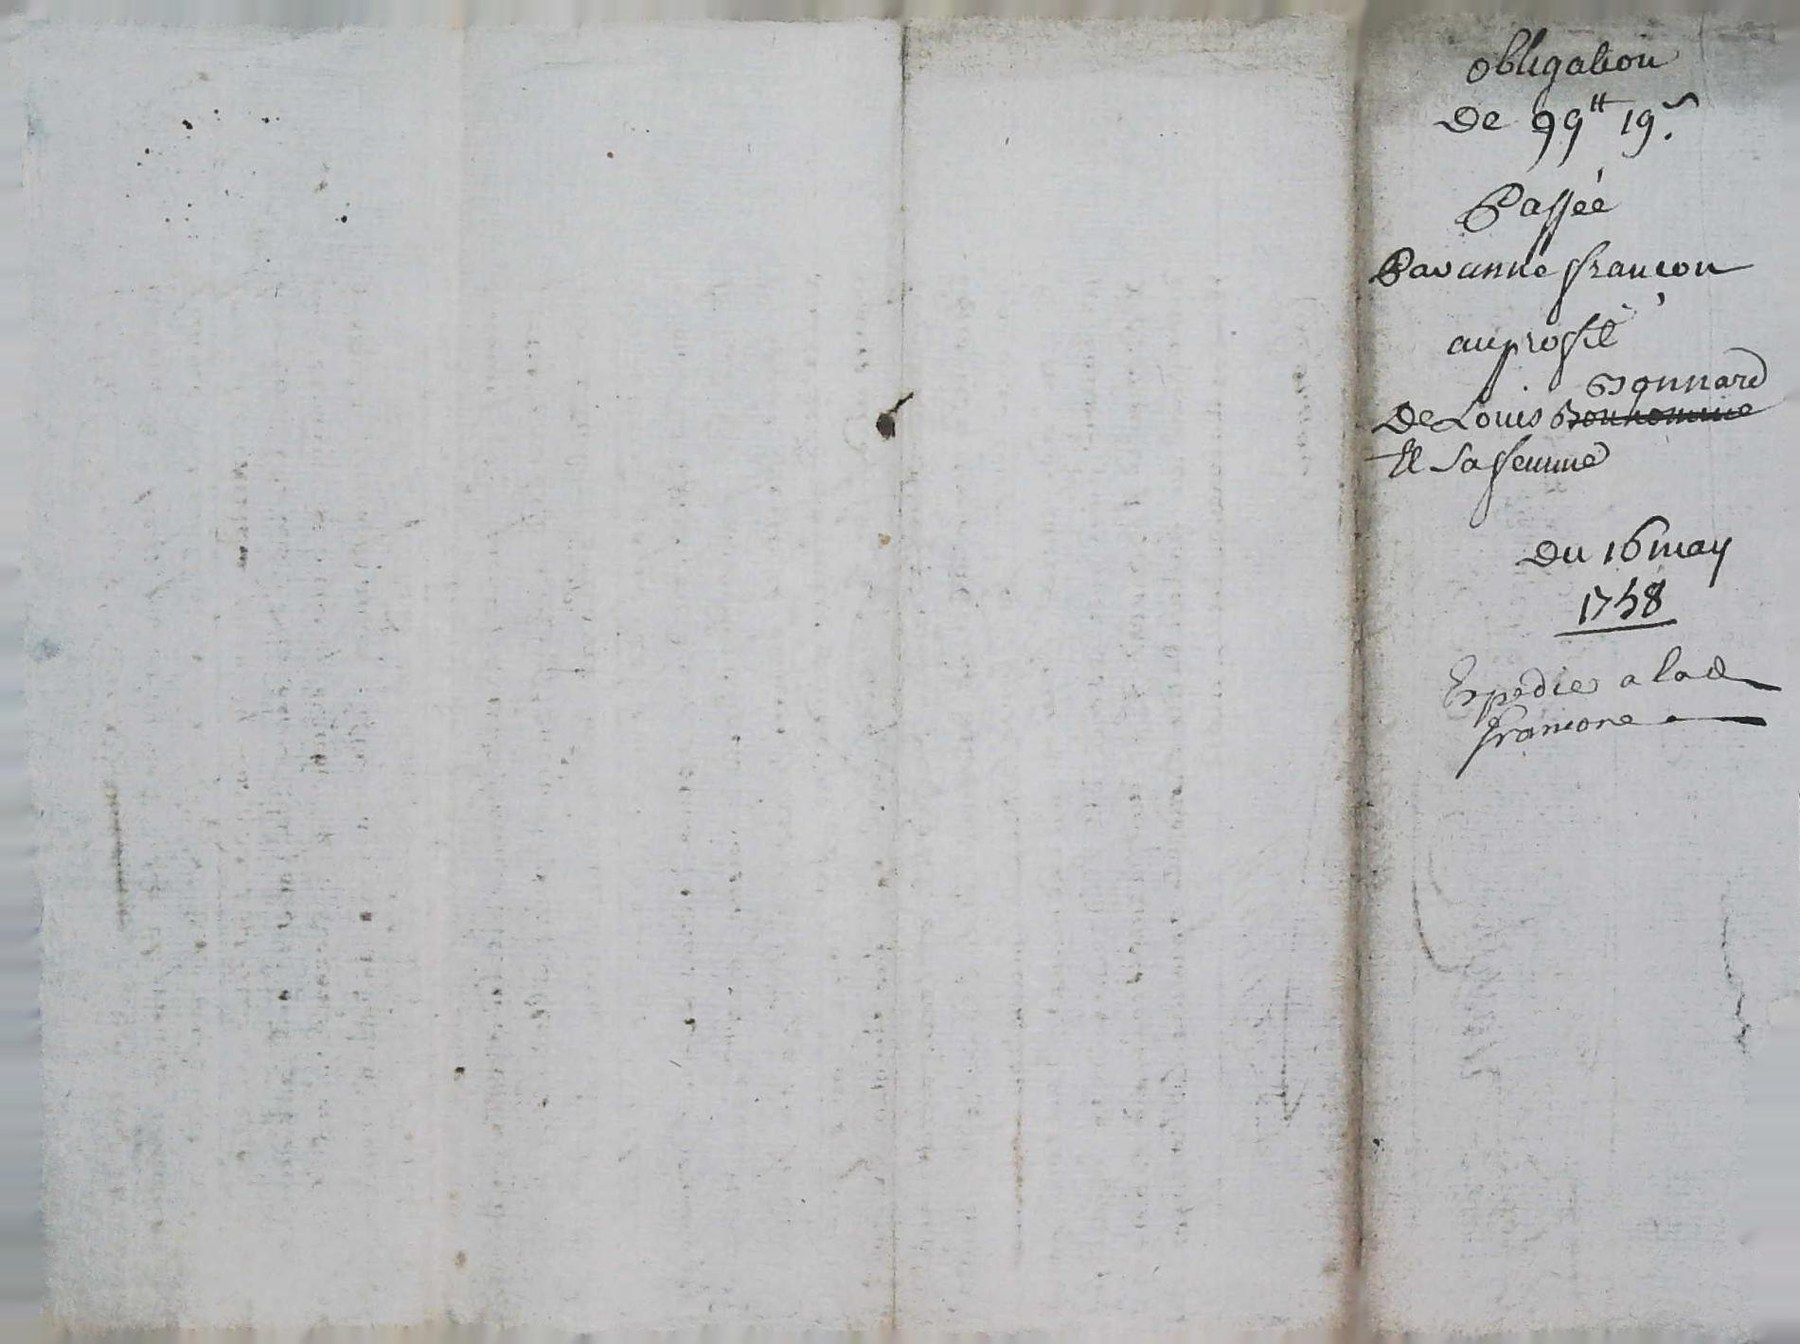 Obligation
De 99tt 19s.
Passée
Par anne françon
au profit
Bonnard
De Louis Bonhomme
Et Sa femme
Du 16 may
1748
Expediez a lad
francone